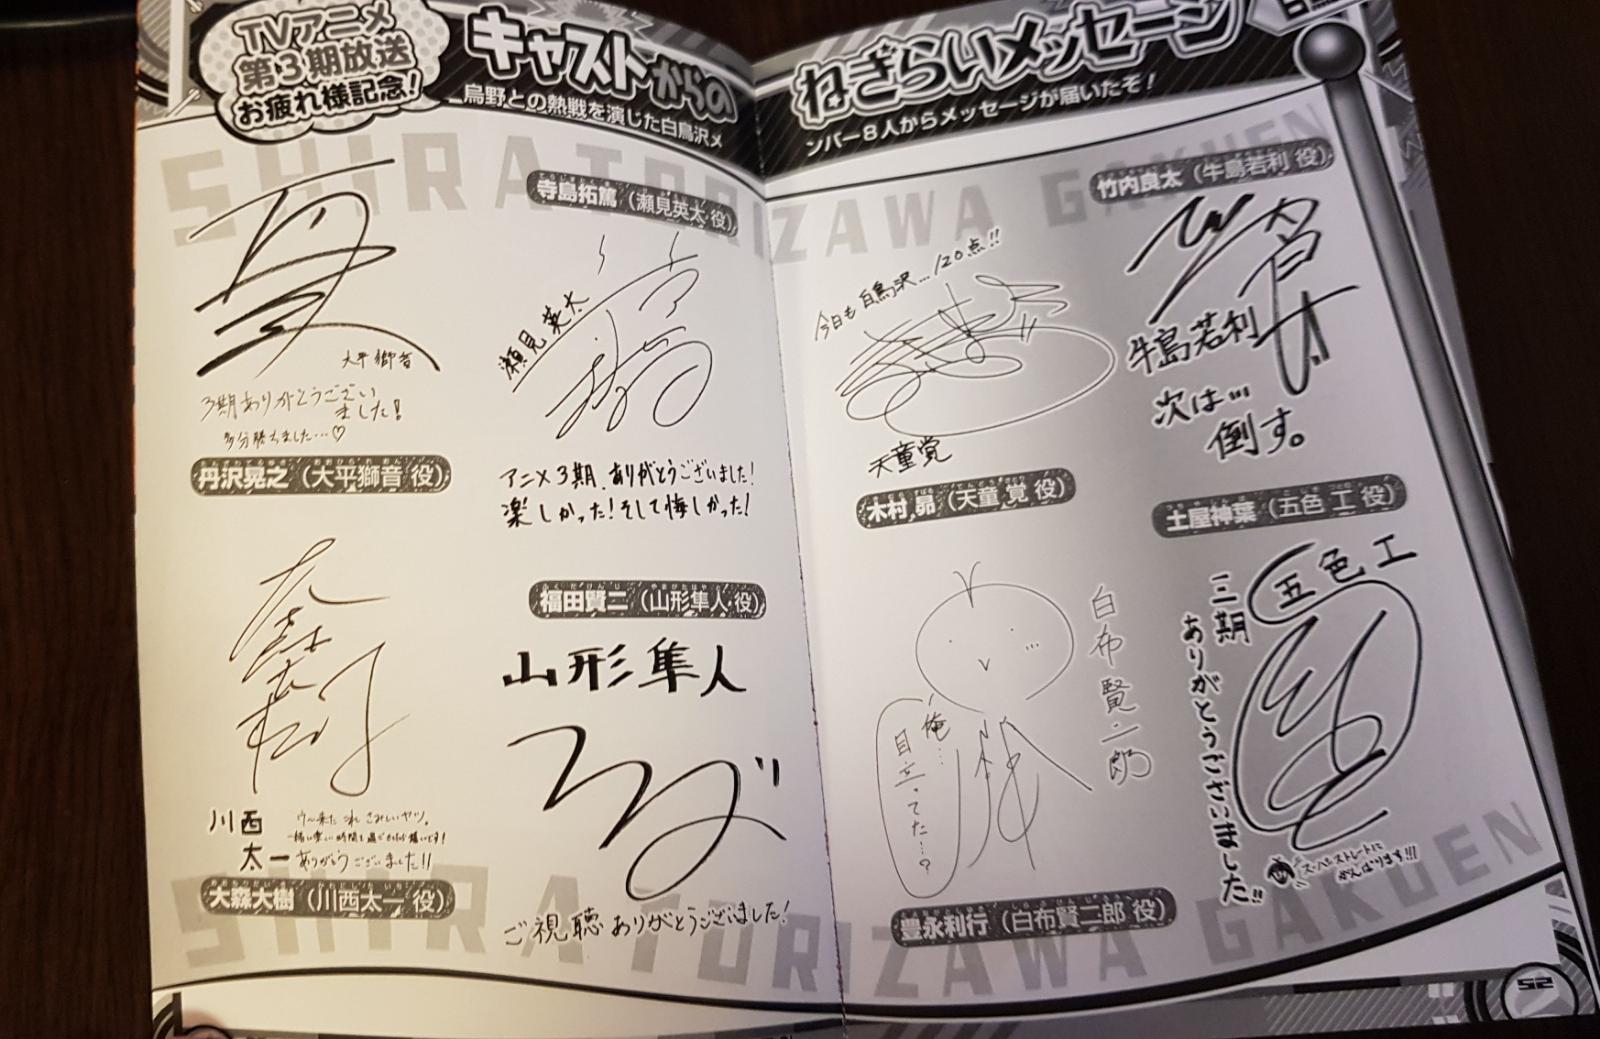 TVアニメ
第3期放送
お疲れ様記念!
キャストからの
ねぎらいメッセージ
烏野との熱戦を演じた白鳥沢メ
ンバー8人からメッセージが届いたぞ!
SHIRATORIZAWA GAKUEN
大平獅音
3期ありがとうござい
ました!
多分勝ちました…♡
丹沢晃之(大平獅音 役)
寺島拓篤(瀬見英太 役)
瀬見英太
アニメ3期、ありがとうございました!
楽しかった!そして悔しかった!
川西
太一
ありがとうございました!!
大森大樹(川西太一 役)
福田賢二(山形隼人 役)
山形隼人
ご視聴ありがとうございました!
今日も白鳥沢…120点!!
天童覚
木村 昴(天童 覚 役)
竹内良太(牛島若利 役)
牛島若利
次は…
倒す。
白布賢二郎
俺…
目立ってた…?
豊永利行(白布賢二郎 役)
土屋神葉(五色 工 役)
五色工
三期
ありがとうございました!!
スーパーストレートに
がんばります!!!
SHIRATORIZAWA GAKUEN
52